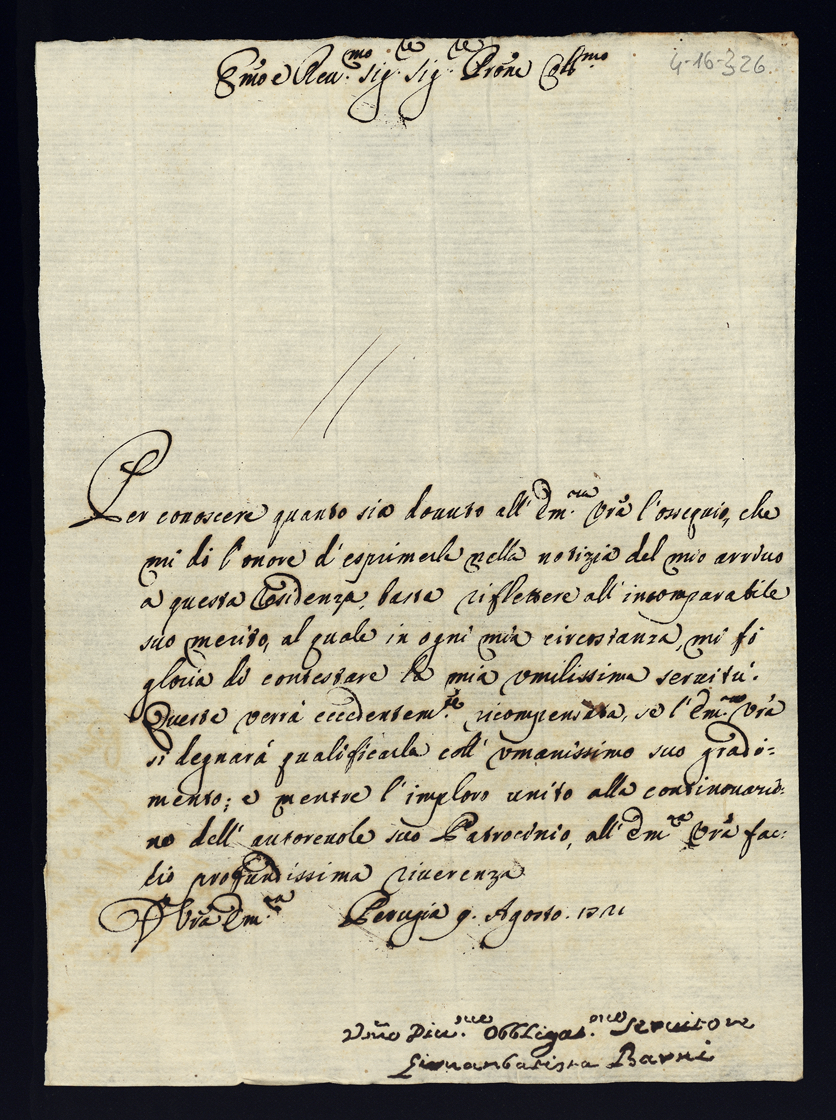 Emo e Reu.mo Sig.re Sig.re Prone Col.mo
4-16-326.
Per conoscere quanto sia douuto all' Em.za Vrã l'ossequio, che
mi dò l'onore d'esprimerle nella notizia del mio arriuo
a questa Residenza, basta riflettere all' incomparabile
suo merito, al quale in ogni mia circostanza, mi fò
gloria di contestare la mia vmilissima seruitù.
Questa verrà eccedentem.te ricompensata, se l'Em.za Vrã
si degnarà qualificarla coll' vmanissimo suo gradi=
mento; e mentre l'imploro unito alla continouazio=
ne dell' autoreuole suo Patrocinio, all' Em.za Vrã fac=
cio profundissima riuerenza
D. Vrã Em.za Perugia 9. Agosto. 1721
Diu.mo Obbligat.mo Seruitore
Giouanbatista Barni